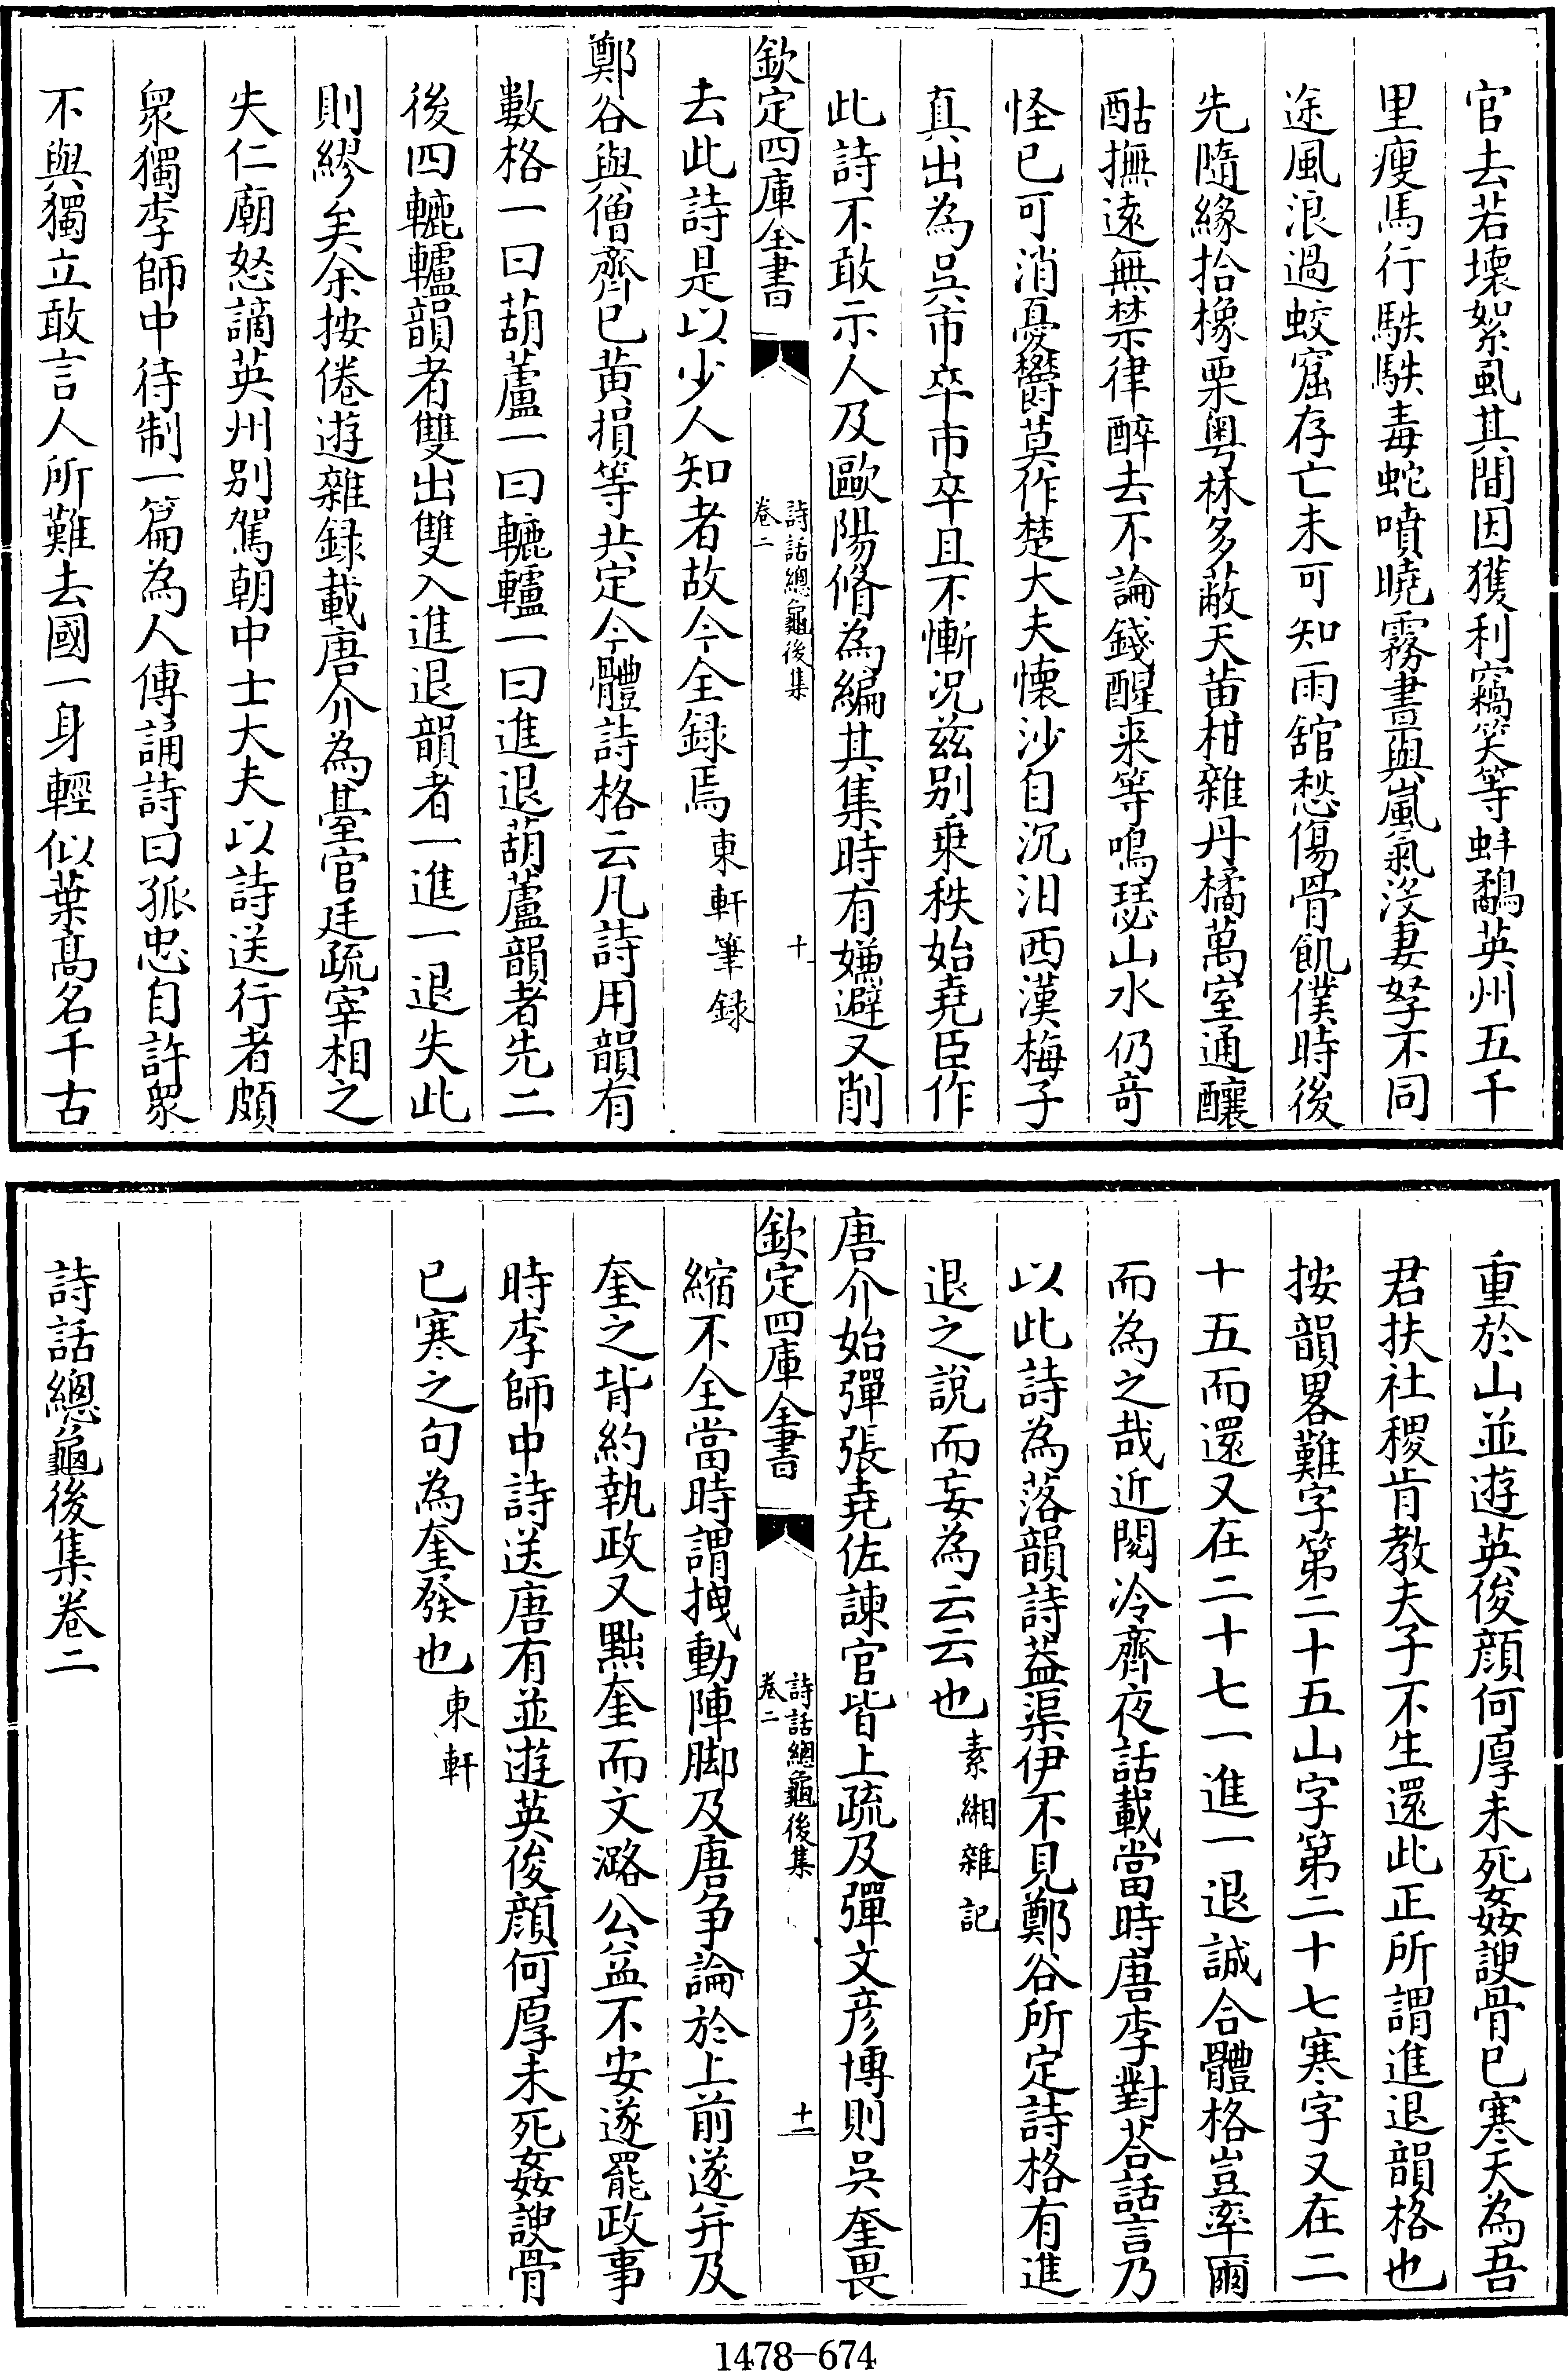 官去若壞絮虱其間因獲利竊笑等蚌鷸英州五千
里瘦馬行駃駃毒蛇噴曉霧晝與嵐氣没妻孥不同
途風浪過蛟窟存亡未可知雨舘愁傷骨飢僕時後
先隨緣拾橡栗粤林多蔽天黄柑雜丹橘萬室通釀
酤撫遠無禁律醉去不論錢醒來等鳴瑟山水仍竒
怪已可消憂鬱莫作楚大夫懷沙自沉汨西漢梅子
真出為吳市卒市卒且不慚况兹别乗秩始堯臣作
此詩不敢示人及歐陽脩為編其集時有嫌避又削
欽定四庫全書
詩話總龜後集
卷二
十
去此詩是以少人知者故今全録焉東軒筆録
鄭谷與僧齊已黄損等共定今體詩格云凡詩用韻有
數格一曰葫蘆一曰轆轤一曰進退葫蘆韻者先二
後四轆轤韻者雙出雙入進退韻者一進一退失此
則繆矣余按倦遊雜録載唐介為臺官廷疏宰相之
失仁廟怒謫英州别駕朝中士大夫以詩送行者頗
衆獨李師中待制一篇為人傳誦詩曰孤忠自許衆
不與獨立敢言人所難去國一身輕似葉髙名千古
重於山並遊英俊顔何厚未死姦諛骨已寒天為吾
君扶社稷肯教夫子不生還此正所謂進退韻格也
按韻畧難字第二十五山字第二十七寒字又在二
十五而還又在二十七一進一退誠合體格豈率爾
而為之哉近閲冷齊夜話載當時唐李對荅話言乃
以此詩為落韻詩葢渠伊不見鄭谷所定詩格有進
退之說而妄為云云也素緗雜記
唐介始彈張堯佐諫官皆上疏及彈文彦博則吳奎畏
欽定四庫全書
詩話總龜後集
卷二
十一
縮不全當時謂拽動陣脚及唐争論於上前遂并及
奎之背約執政又黜奎而文潞公益不安遂罷政事
時李師中詩送唐有並遊英俊顔何厚未死姦諛骨
已寒之句為奎發也東軒
詩話總龜後集卷二
1478—674